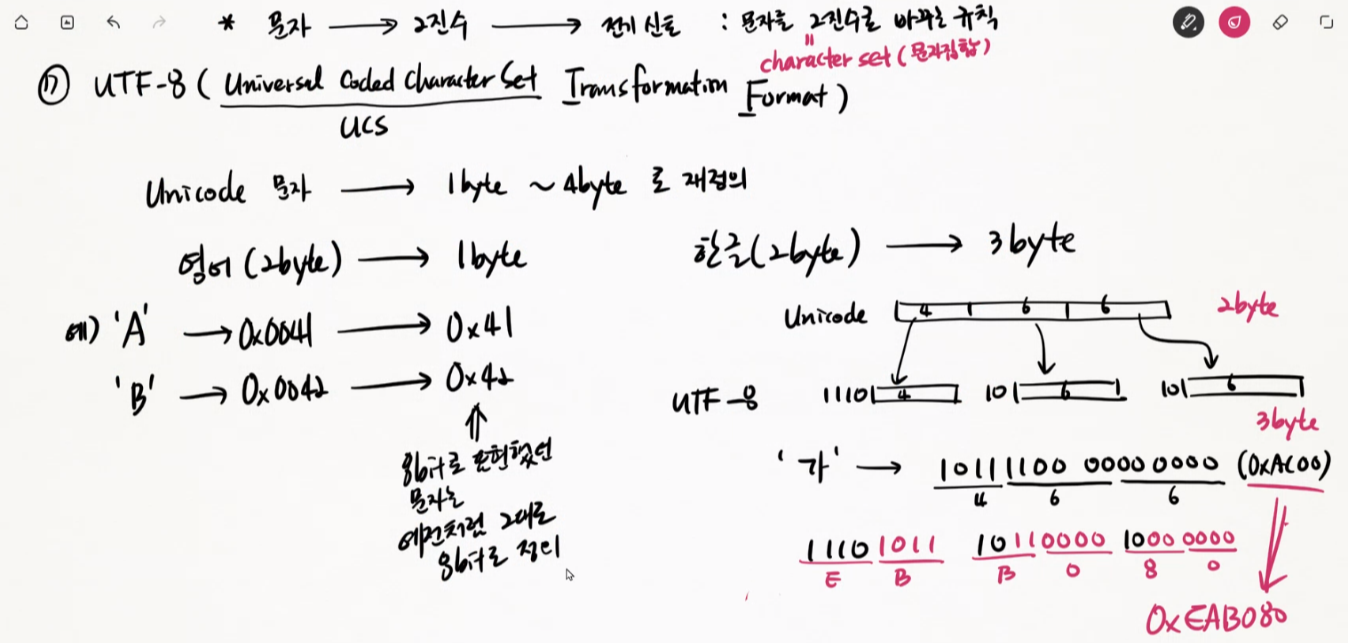 * 문자 → 2진수 → 전기 신호 : 문자를 2진수로 바꾸는 규칙
= character set (문자집합)
⑰ UTF-8 ( Universal Coded Character Set Transformation Format )
UCS
Unicode 문자 → 1byte ~ 4byte 로 재정의
영어 (2byte) → 1byte
예) 'A' → 0x0041 → 0x41
'B' → 0x0042 → 0x42
8bit로 표현했던
문자는
예전처럼 그대로
8bit로 정의
한글(2byte) → 3byte
Unicode 4 6 6 2byte
UTF-8 1110 4 10 6 10 6
3byte
'가' → 10111100 00000000 (0xAC00)
4 6 6
1110 1011 10110000 1000 0000
E B B 0 8 0
0xEAB080